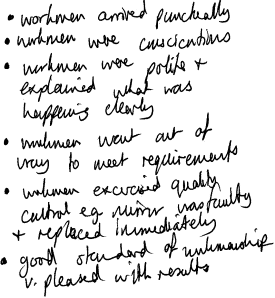 • workmen arrived punctually
• workmen were conscientious
• workmen were polite +
explained what was
happening clearly
• workmen went out of
way to meet requirements
• workmen excercised quality
control eg mirror was faulty
+ replaced immediately
• good standard of workmanship
v. pleased with results